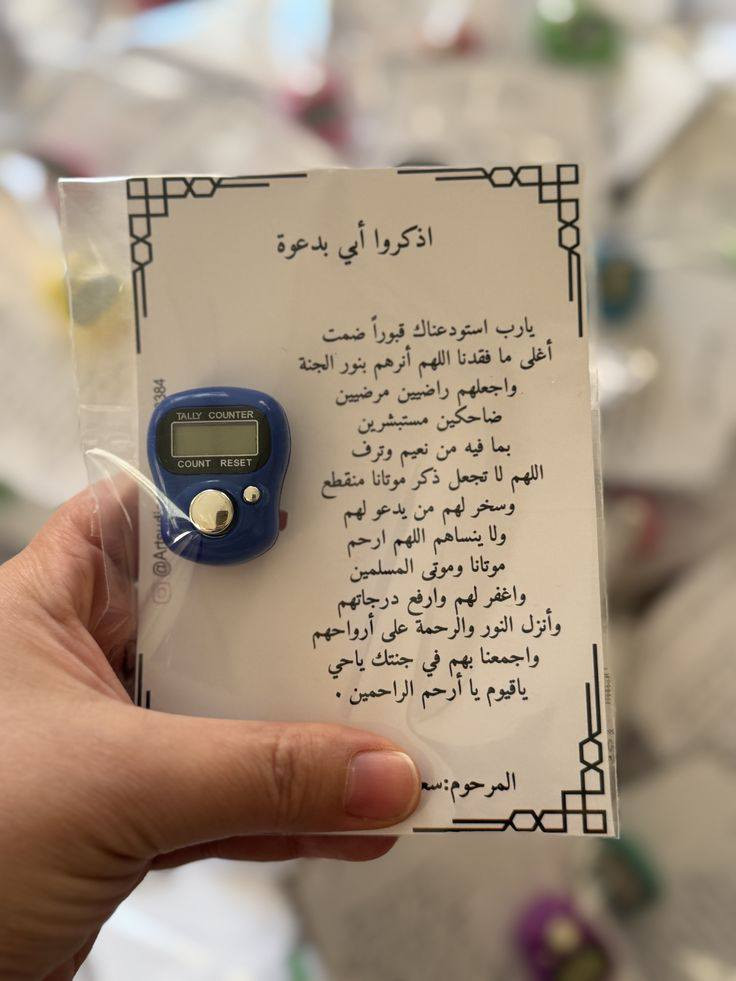 اذكروا أبي بدعوة
يارب استودعناك قبوراً ضمت
أغلى ما فقدنا اللهم أنرهم بنور الجنة
واجعلهم راضيين مرضيين
ضاحكين مستبشرين
بما فيه من نعيم وترف
اللهم لا تجعل ذكر موتانا منقطع
وسخر لهم من يدعو لهم
ولا ينساهم اللهم ارحم
موتانا وموتى المسلمين
واغفر لهم وارفع درجاتهم
وأنزل النور والرحمة على أرواحهم
واجمعنا بهم في جنتك ياحي
ياقيوم يا أرحم الراحمين .
المرحوم:
TALLY COUNTER
COUNT RESET